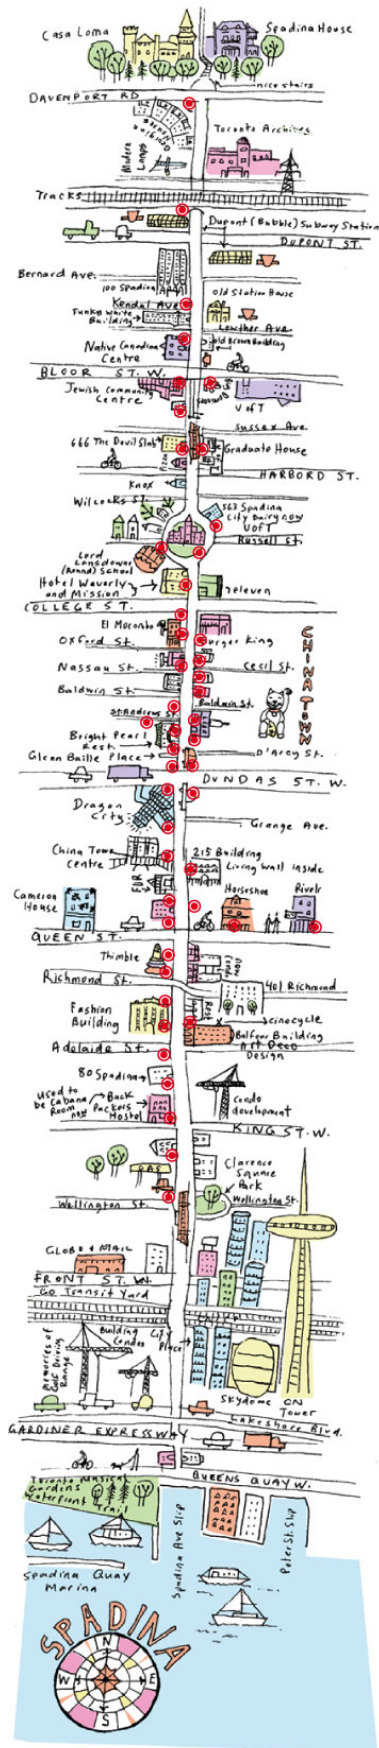 Casa Loma
Spadina House
nice stairs
DAVENPORT RD
Toronto Archives
Tracks
Dupont (Bubble) Subway Station
DUPONT ST.
Bernard Ave.
100 Spadina
Old Station House
Kendal Ave
Funky White
Building
Lowther Ave
Native Canadian
Centre
old Brown Building
BLOOR ST. W.
Jewish Community
Centre
U of T
Sussex Ave.
666 The Devil Slab
Graduate House
HARBORD ST.
Knox
Wilcocks St.
563 Spadina
City Dairy now
U of T
Russell St.
Lord
Lansdowne
(Round) School
Hotel Waverly
and Mission
7eleven
COLLEGE ST.
El Mocambo
Burger King
Oxford St.
Nassau St.
Cecil St.
CHINATOWN
Baldwin St.
Baldwin St.
St Andrews St
Bright Pearl
Rest.
Glen Baillie Place
D'Arcy St.
DUNDAS ST. W.
Dragon
City
Grange Ave.
China Town
Centre
215 Building
Living Wall inside
Cameron
House
Horseshoe
Rivoli
QUEEN ST.
Thimble
Richmond St.
401 Richmond
Fashion
Building
cinecycle
Balfour Building
Art Deco
Design
Adelaide St.
80 Spadina
Used to
be Cabana
Room
now
Back
Packers
Hostel
Condo
development
KING ST. W.
GAS
Clarence
Square
Park
Wellington St.
Wellington St.
GLOBE & MAIL
FRONT ST. W.
Go Transit Yard
Memories of
Golf Driving
Range
Building
Condos
City
Place
Skydome
CN
Tower
Lakeshore Blvd.
GARDINER EXPRESSWAY
QUEENS QUAY W.
Toronto Musical
Gardens
Waterfront
Trail
Spadina Ave Slip
Peter St. Slip
Spadina Quay
Marina
SPADINA
N
W
E
S